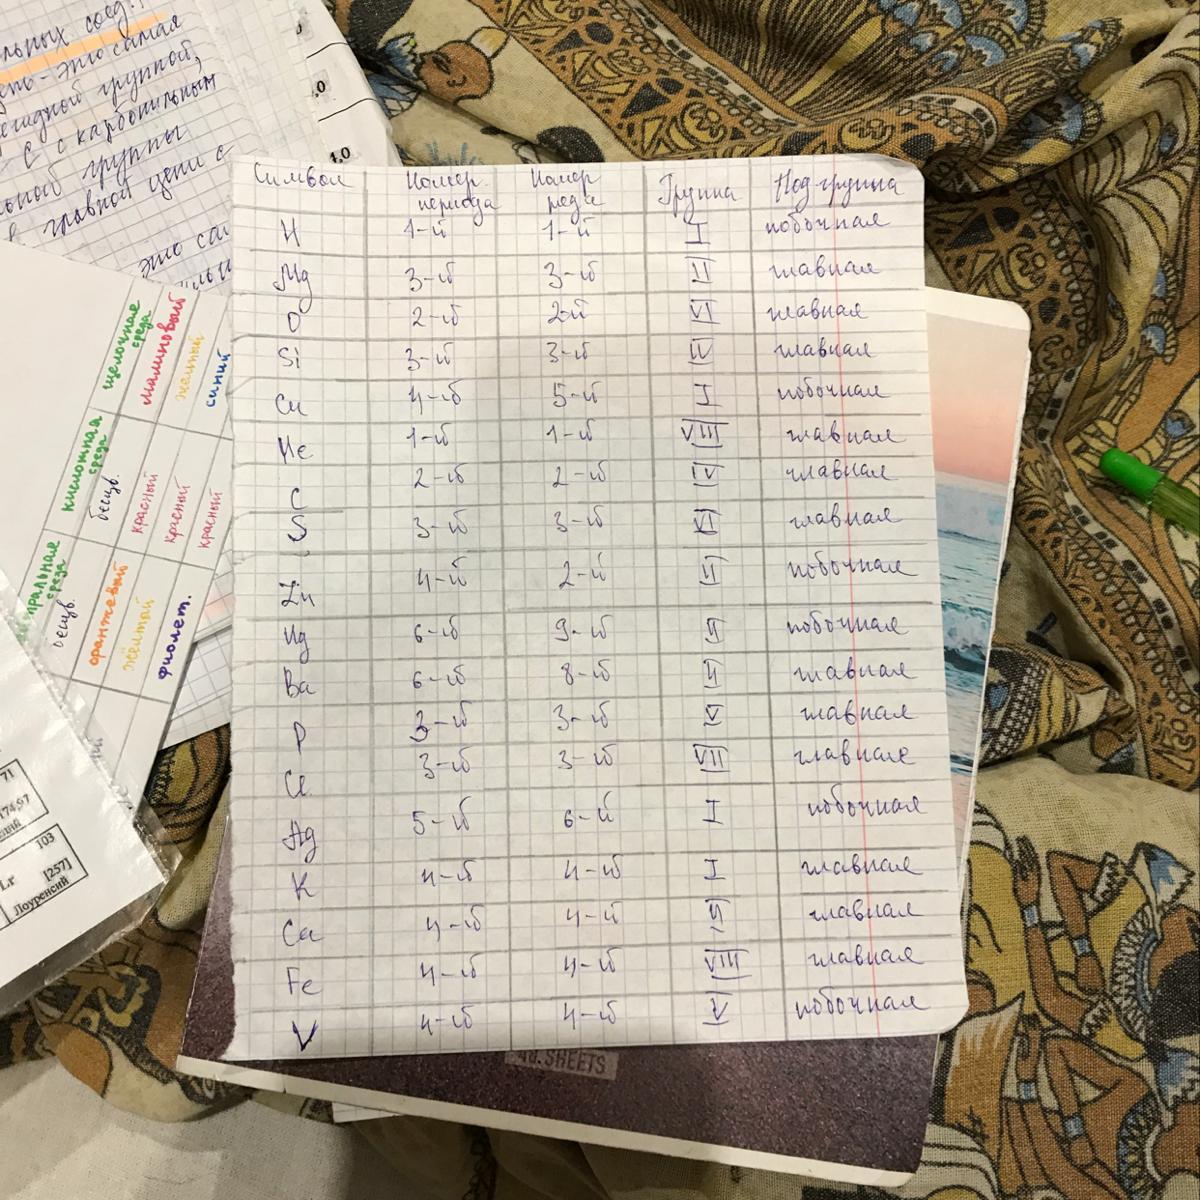 льных соед.,
это самая
группой,
С с карбонильным
группы
главной цепи с
это
1.0
.0
Символ Номер периода Номер ряда Группа Подгруппа
H 1-й 1-й I побочная
Mg 3-й 3-й II главная
O 2-й 2-й VI главная
Si 3-й 3-й IV главная
Cu 4-й 5-й I побочная
He 1-й 1-й VIII главная
C 2-й 2-й IV главная
S 3-й 3-й VI главная
Zn 4-й 2-й II побочная
Hg 6-й 9-й II побочная
Ba 6-й 8-й II главная
P 3-й 3-й V главная
Cl 3-й 3-й VII главная
Ag 5-й 6-й I побочная
K 4-й 4-й I главная
Ca 4-й 4-й II главная
Fe 4-й 4-й VIII главная
V 4-й 4-й V побочная
щелочная среда
малиновый
жёлтый
синий
кислотная среда
бесцв.
красный
красный
красный
тральная среда
бесцв.
оранжевый
жёлтый
фиолет.
71
174.97
103
Lr [257]
Лоуренсий
40. SHEETS